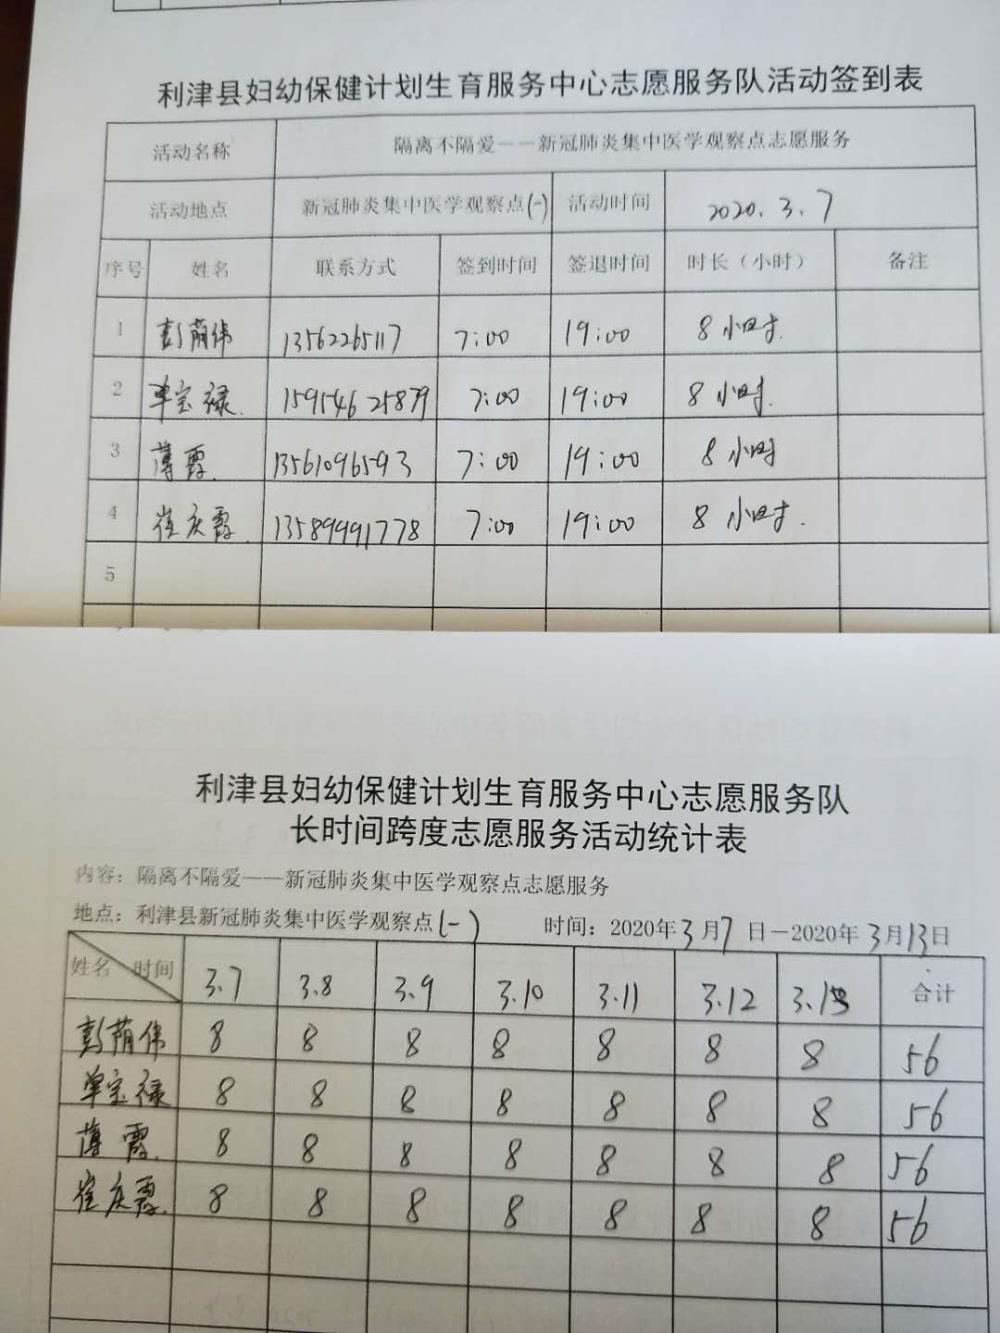 利津县妇幼保健计划生育服务中心志愿服务队活动签到表
活动名称 隔离不隔爱——新冠肺炎集中医学观察点志愿服务
活动地点 新冠肺炎集中医学观察点(一) 活动时间 2020.3.7
序号 姓名 联系方式 签到时间 签退时间 时长（小时） 备注
1 彭荫伟 13562265117 7:00 19:00 8小时.
2 单宝禄. 15954625879 7:00 19:00 8小时.
3 薄霞. 13561096593 7:00 19:00 8小时
4 崔庆霞. 13589991778 7:00 19:00 8小时.
5
利津县妇幼保健计划生育服务中心志愿服务队
长时间跨度志愿服务活动统计表
内容：隔离不隔爱——新冠肺炎集中医学观察点志愿服务
地点：利津县新冠肺炎集中医学观察点(一) 时间：2020年3月7日－2020年3月13日
姓名 时间 3.7 3.8 3.9 3.10 3.11 3.12 3.13 合计
彭荫伟 8 8 8 8 8 8 8 56
单宝禄 8 8 8 8 8 8 8 56
薄霞. 8 8 8 8 8 8 8 56
崔庆霞. 8 8 8 8 8 8 8 56